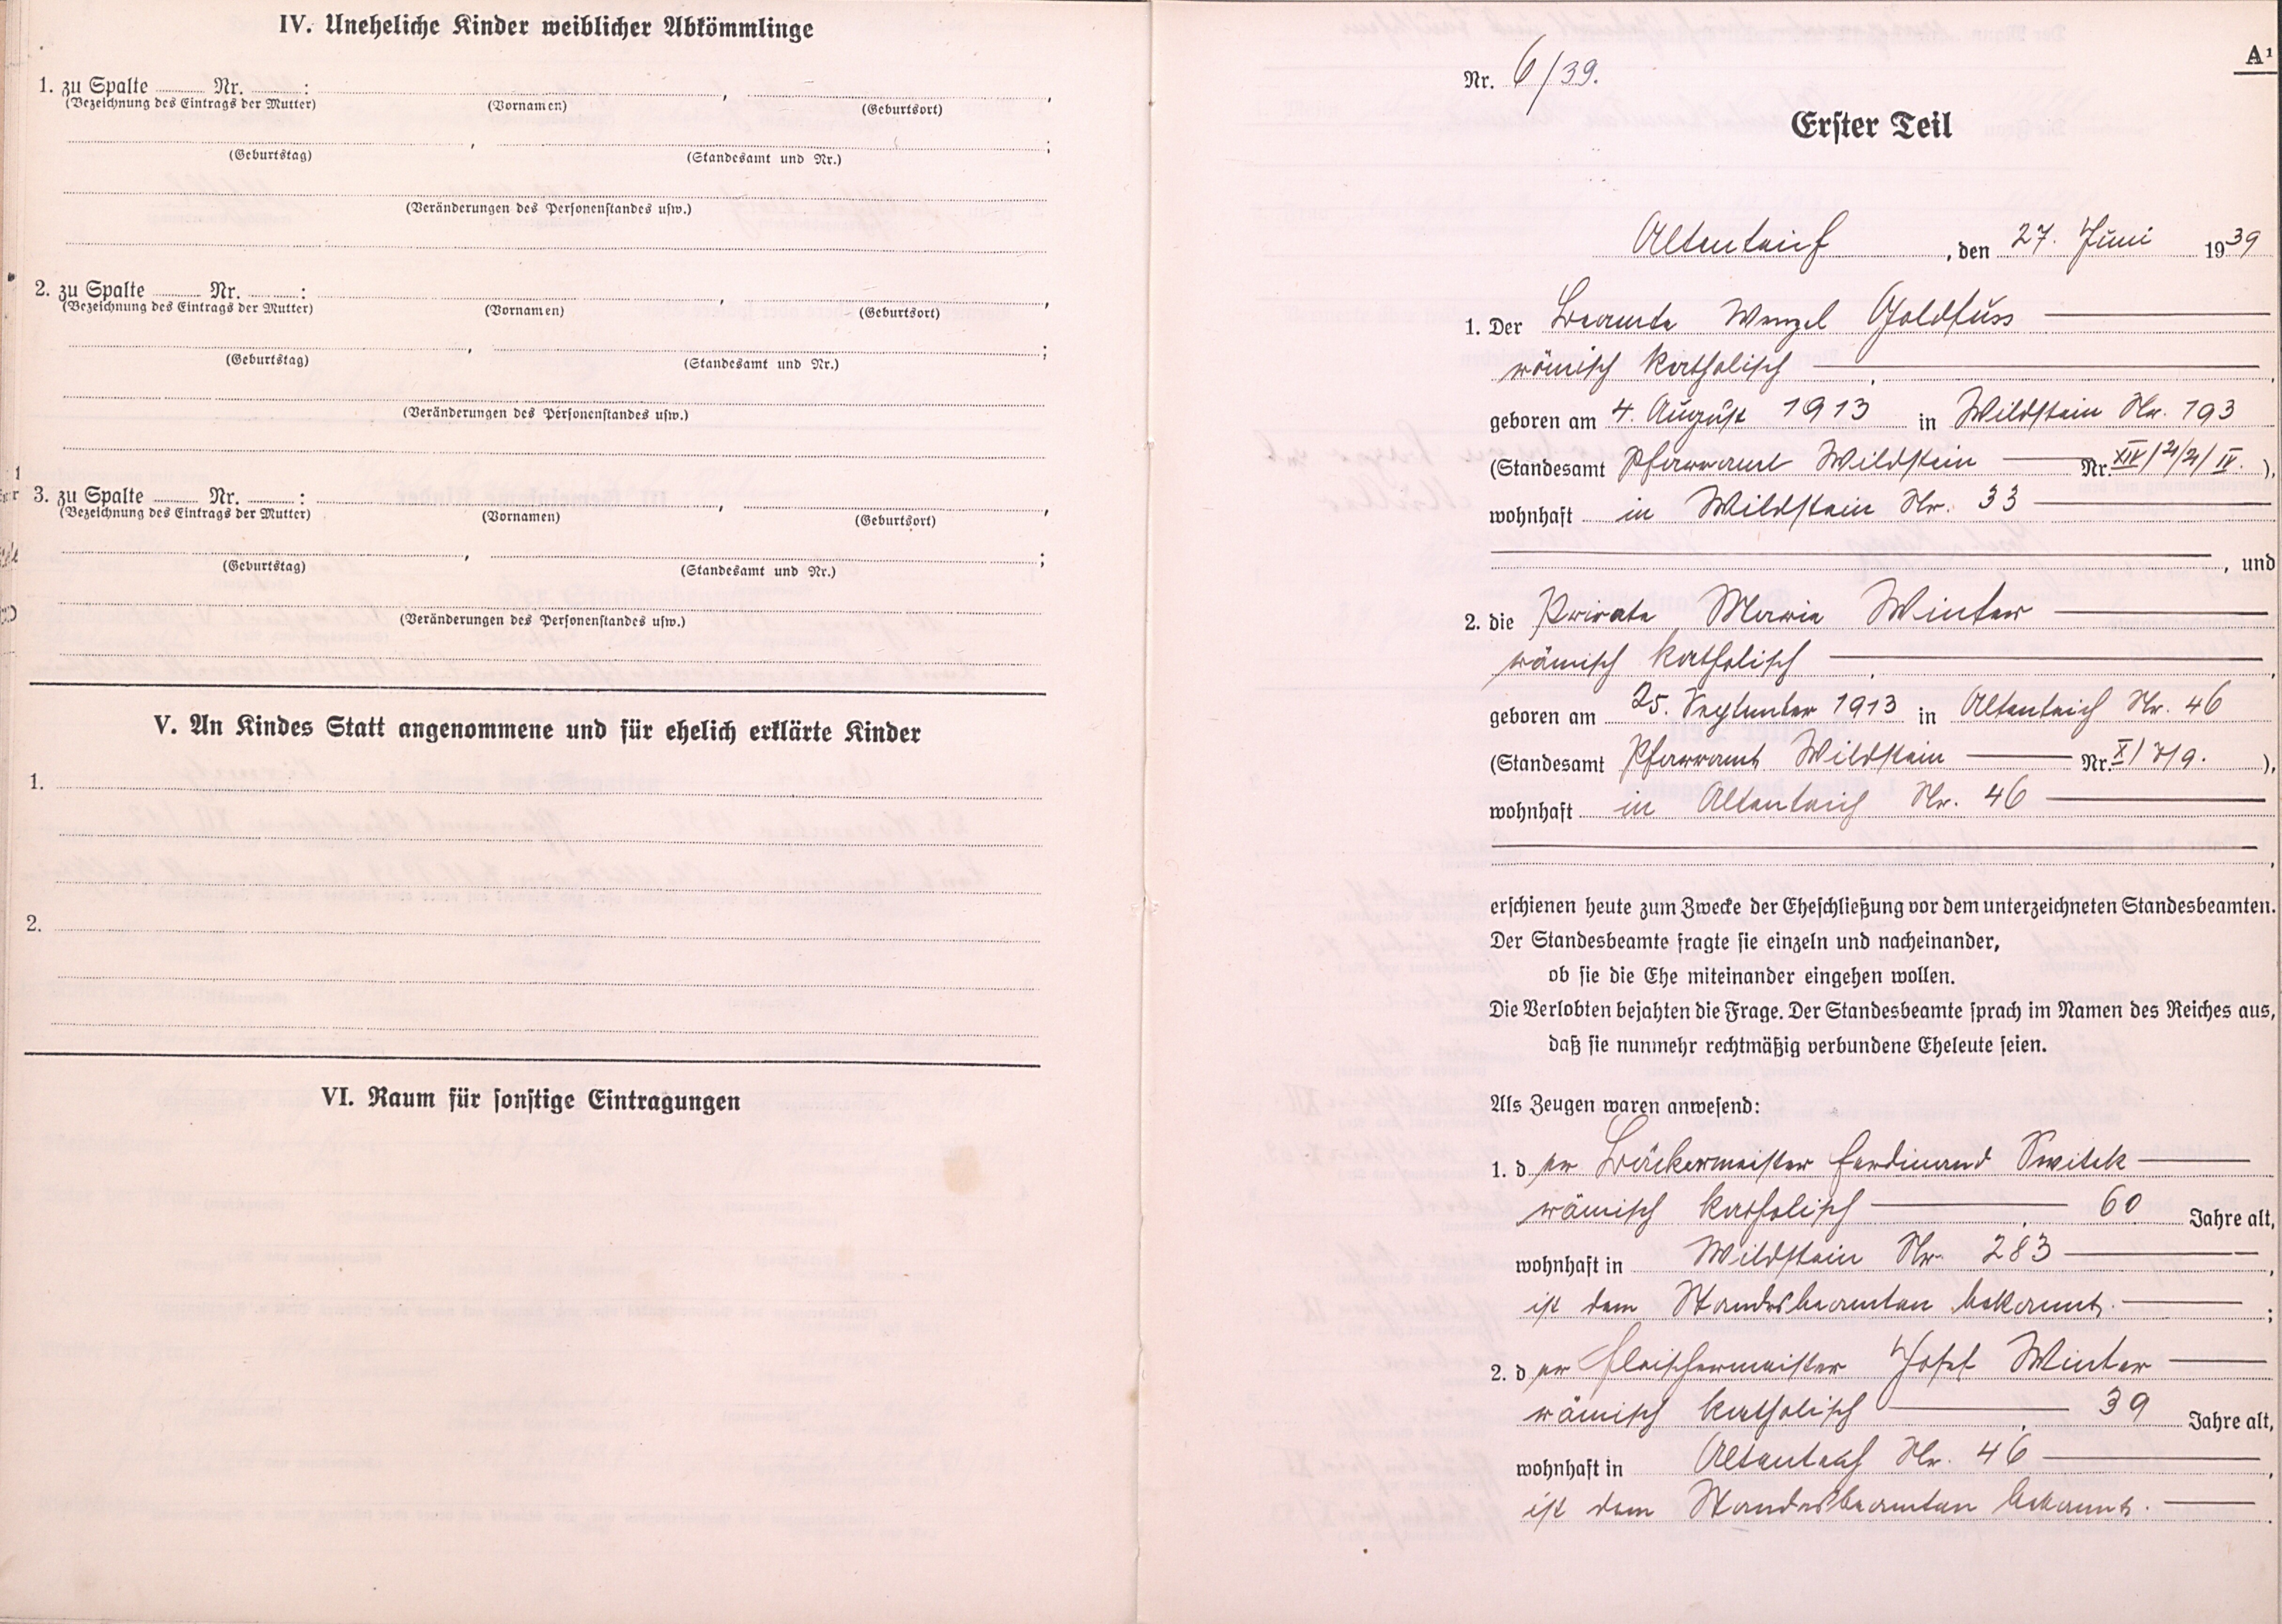 IV. Uneheliche Kinder weiblicher Abkömmlinge
1. zu Spalte ........ Nr. ........ : ........ , ........ ,
(Bezeichnung des Eintrags der Mutter) (Vornamen) (Geburtsort)
(Geburtstag) , (Standesamt und Nr.) ;
(Veränderungen des Personenstandes usw.)
2. zu Spalte ........ Nr. ........ : ........ , ........ ,
(Bezeichnung des Eintrags der Mutter) (Vornamen) (Geburtsort)
(Geburtstag) , (Standesamt und Nr.) ;
(Veränderungen des Personenstandes usw.)
3. zu Spalte ........ Nr. ........ : ........ , ........ ,
(Bezeichnung des Eintrags der Mutter) (Vornamen) (Geburtsort)
(Geburtstag) , (Standesamt und Nr.) ;
(Veränderungen des Personenstandes usw.)
V. An Kindes Statt angenommene und für ehelich erklärte Kinder
1.
2.
VI. Raum für sonstige Eintragungen
A¹
Nr. 6/39.
Erster Teil
Altenteich, den 27. Juni 1939
1. Der Beamte Wenzel Goldfuss
römisch katholisch ,
geboren am 4. August 1913 in Wildstein Nr. 193
(Standesamt Pfarramt Wildstein Nr. XIV/2/2/IV. ),
wohnhaft in Wildstein Nr. 33
, und
2. die Private Marie Winter
römisch katholisch ,
geboren am 25. September 1913 in Altenteich Nr. 46
(Standesamt Pfarramt Wildstein Nr. X/7/9. ),
wohnhaft in Altenteich Nr. 46
,
erschienen heute zum Zwecke der Eheschließung vor dem unterzeichneten Standesbeamten.
Der Standesbeamte fragte sie einzeln und nacheinander,
ob sie die Ehe miteinander eingehen wollen.
Die Verlobten bejahten die Frage. Der Standesbeamte sprach im Namen des Reiches aus,
daß sie nunmehr rechtmäßig verbundene Eheleute seien.
Als Zeugen waren anwesend:
1. der Bäckermeister Ferdinand Switek
römisch katholisch , 60 Jahre alt,
wohnhaft in Wildstein Nr. 283 ,
ist dem Standesbeamten bekannt. ;
2. der Fleischermeister Josef Winter
römisch katholisch , 39 Jahre alt,
wohnhaft in Altenteich Nr. 46 ,
ist dem Standesbeamten bekannt. .